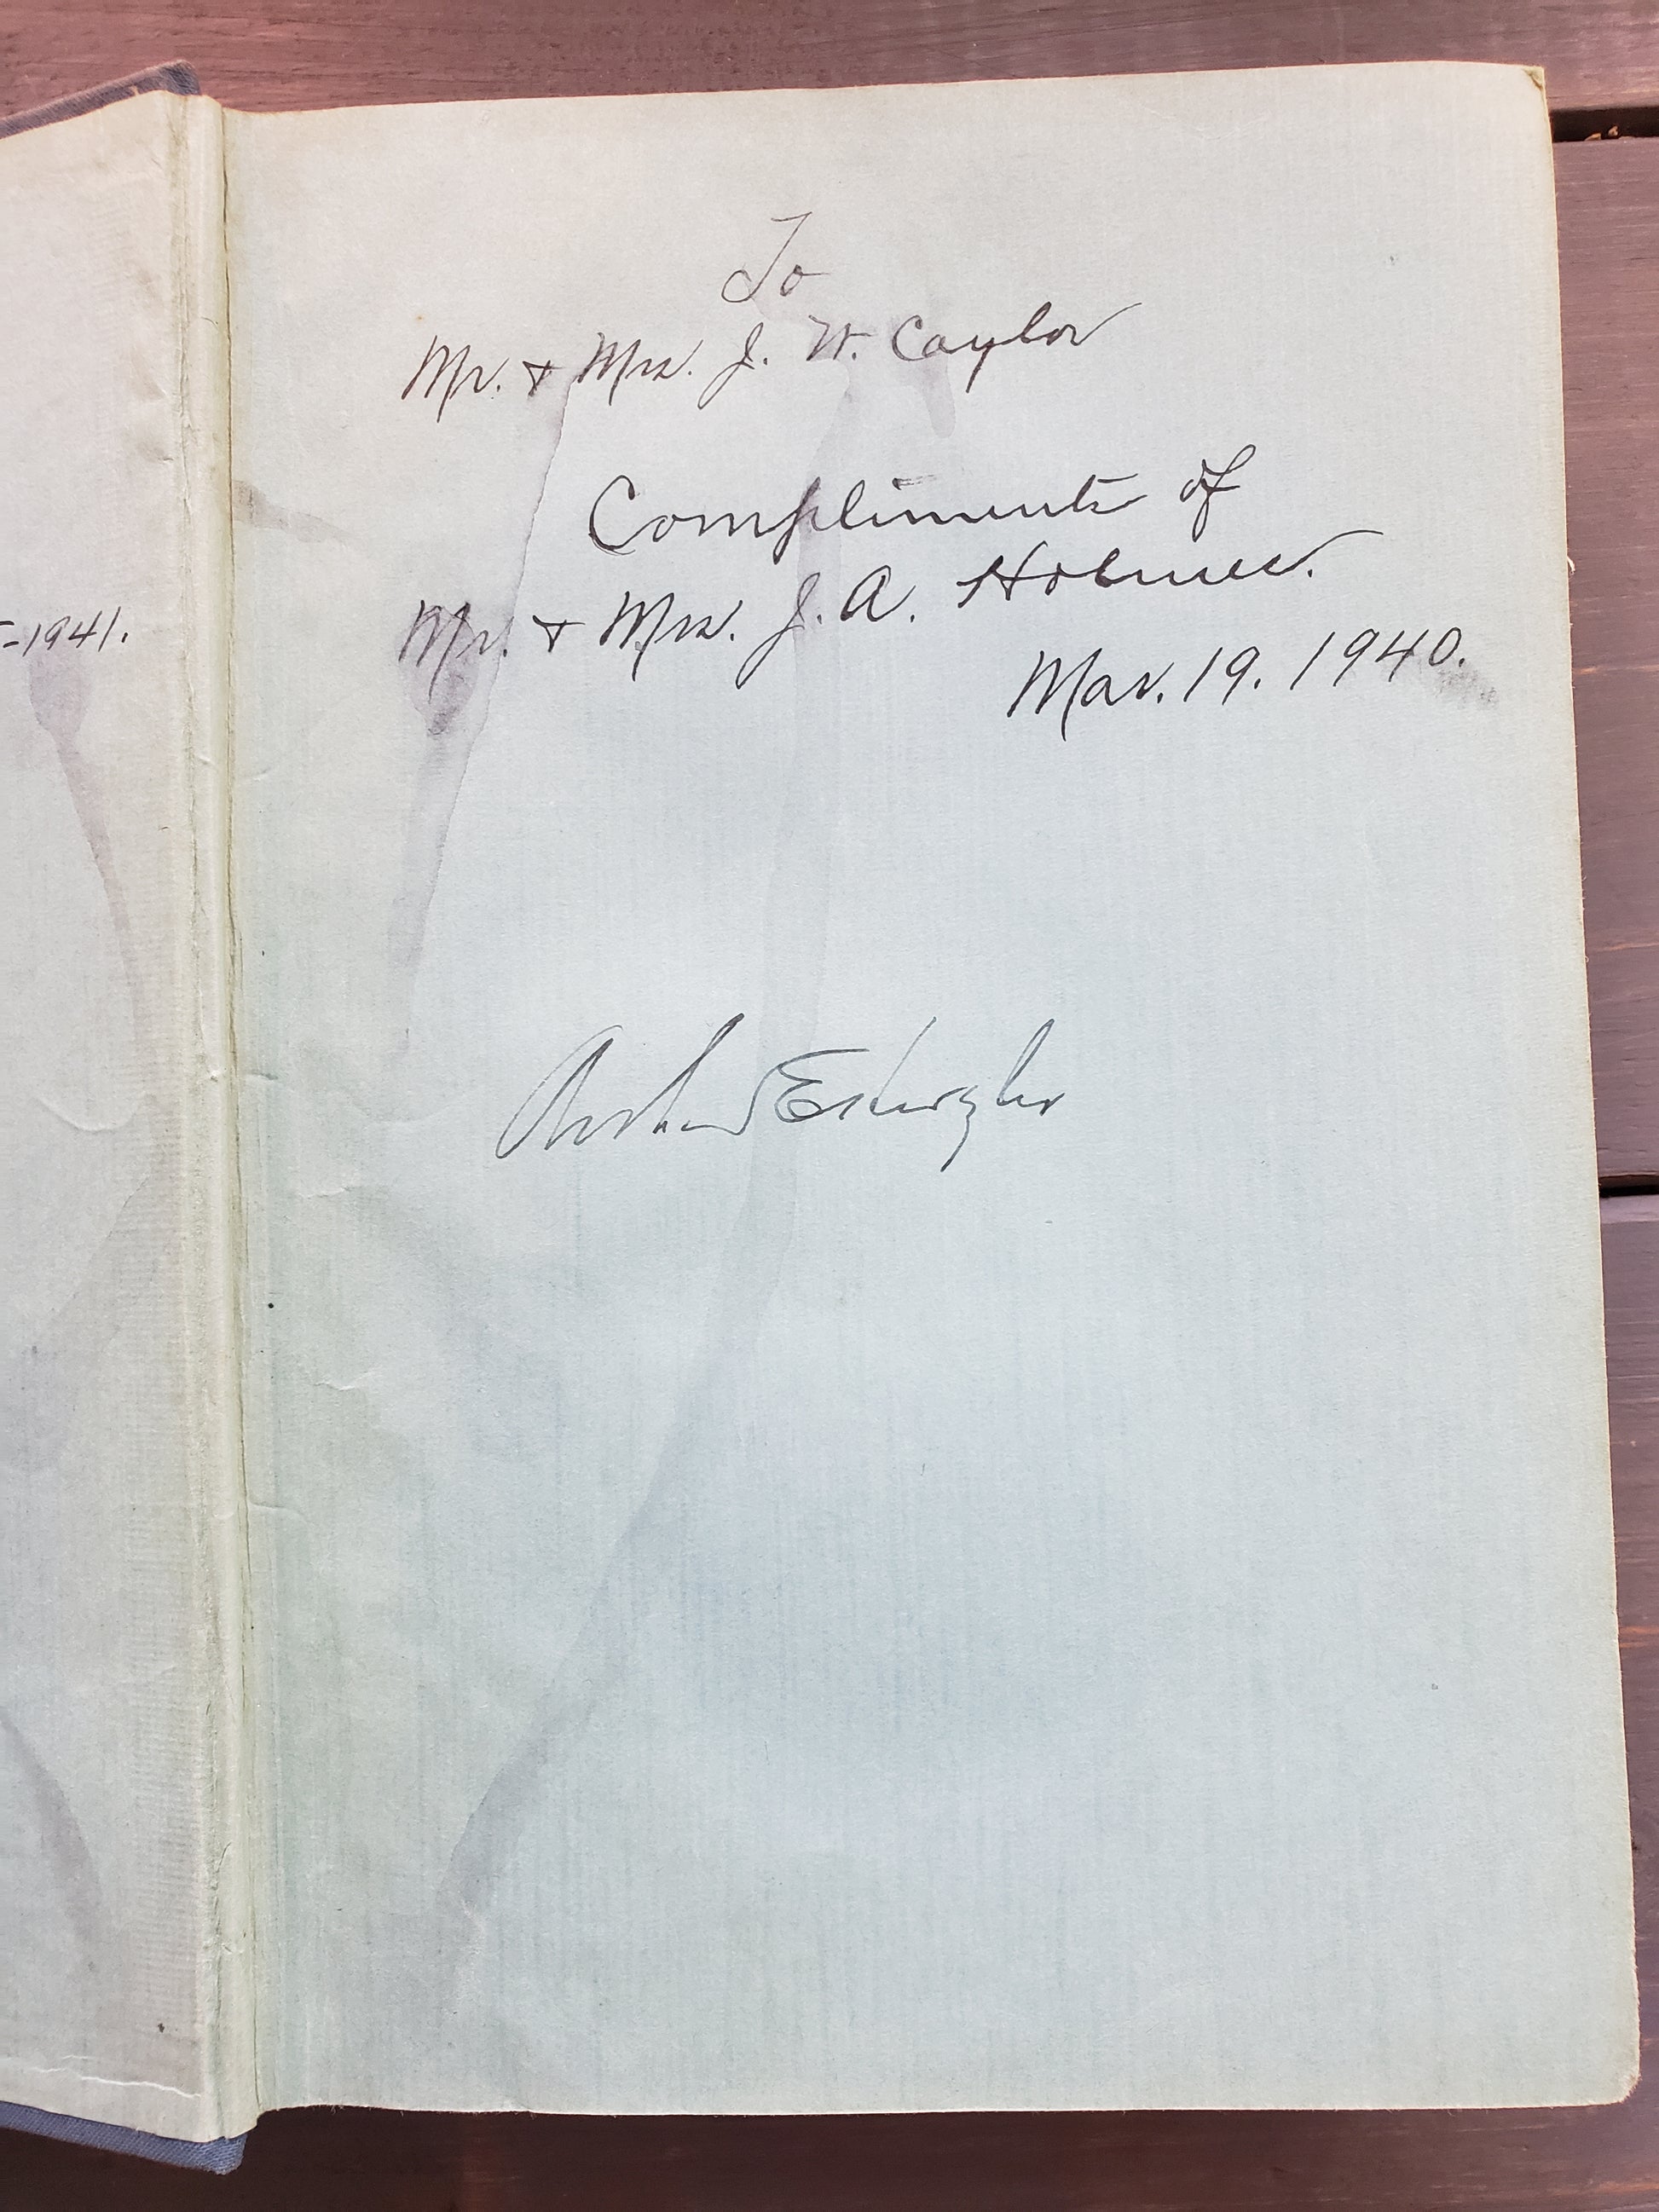 -1941.
To
Mr. + Mrs. J. W. Caylor
Compliments of
Mr. + Mrs. J. A. Holmes.
Mar. 19. 1940.